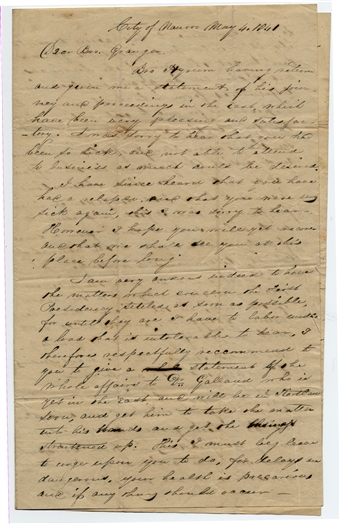 City of Nauvoo May 4. 1841
Dear Bro. Granger
Bro Hyrum having return
and given me a statement, of his jour
ney and proceedings in the East, which
have been very pleasing and satisfac
tory. I was sorry to hear that you had
been so sick, and not able to attend
to business as much as could be desired.
I have since heard that you have
had a relapse, and that you were very
sick again, this I was sorry to hear.
However I hope you will yet recover
and that we shall see you at this
place before long.
I am very anxious indeed to have
the matters which concern the First
Presidency settled as soon as possible,
for until they are I have to labor under
a load that is intolerable to bear, I
therefore respectfully recommend to
you to give a statement of the
whole affairs to Dr Galland who is
yet in the East and will be in Kirtland
soon, and get him to take the matter
into his hands and get the
straitened up. This I must beg leave
to urge upon you to do, for delays are
dangerous, your health is precarious
and if any thing should occur